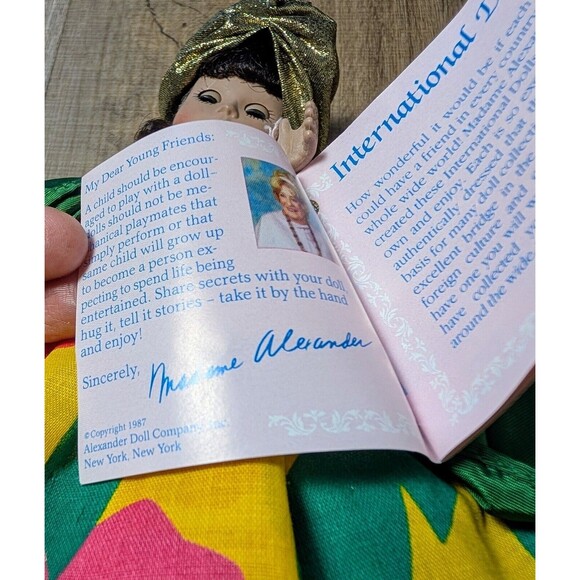 My Dear Young Friends:
A child should be encour-
aged to play with a doll–
dolls should not be me-
hanical playmates that
simply perform or that
same child will grow up
to become a person ex-
pecting to spend life being
entertained. Share secrets with your doll,
hug it, tell it stories – take it by the hand
and enjoy!
Sincerely, Madame Alexander
© Copyright 1987
Alexander Doll Company, Inc.
New York, New York
International D
How wonderful it would be if each
could have a friend in every country
whole wide world! Madame Alexan
created these International Dolls
own and enjoy. Each is so
authentically dressed
basis for many doll collect
excellent bridge to
foreign culture
have one you will
have collected
around the wide